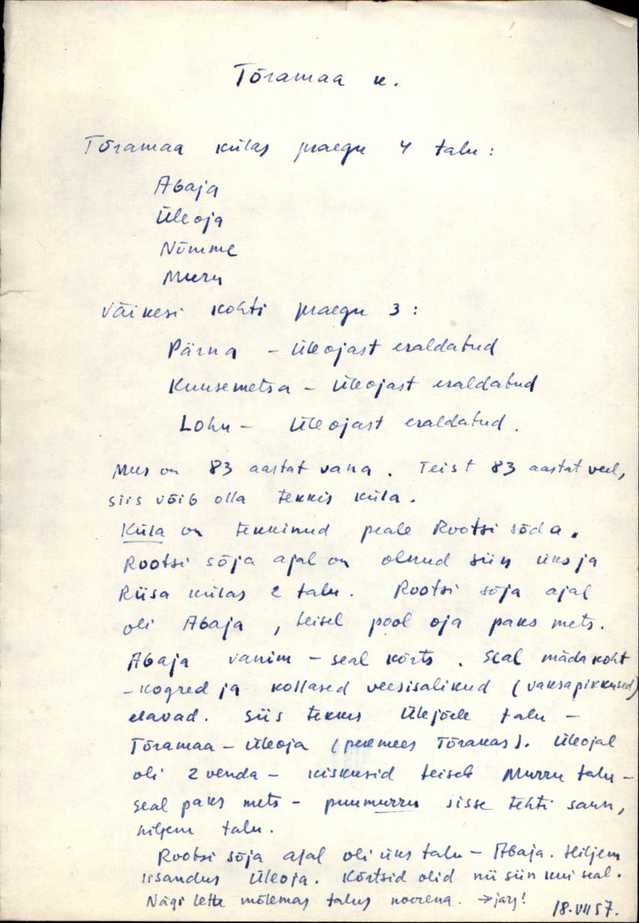 Tõramaa k.
Tõramaa külas praegu 4 talu:
Abaja
Üleoja
Nõmme
Murru
Väikesi kohti praegu 3:
Pärna – Üleojast eraldatud
Kuusemetsa – Üleojast eraldatud
Lohu – Üleojast eraldatud.
Mus on 83 aastat vana. Teist 83 aastat veel,
siis võib olla tekkis küla.
Küla on tekkinud peale Rootsi sõda.
Rootsi sõja ajal on olnud siin üks ja
Riisa külas 2 talu. Rootsi sõja ajal
oli Abaja, teisel pool oja paks mets.
Abaja vanim – seal kõrts. Seal mäda koht
– kogred ja kollased veesisalikud (vaksapikkused)
elavad. Siis tekkis Ülejõele talu –
Tõramaa – Üleoja (peremees Tõrakas). Üleojal
oli 2 venda – kiskusid teisele Murru talu –
seal paks mets – puumurru sisse tehti saun,
hiljem talu.
Rootsi sõja ajal oli üks talu – Abaja. Hiljem
Üleoja. Kõrtsid olid nii siin kui seal.
Nägi lette mõlemas talus noorena. → järg!
18.VII 57.